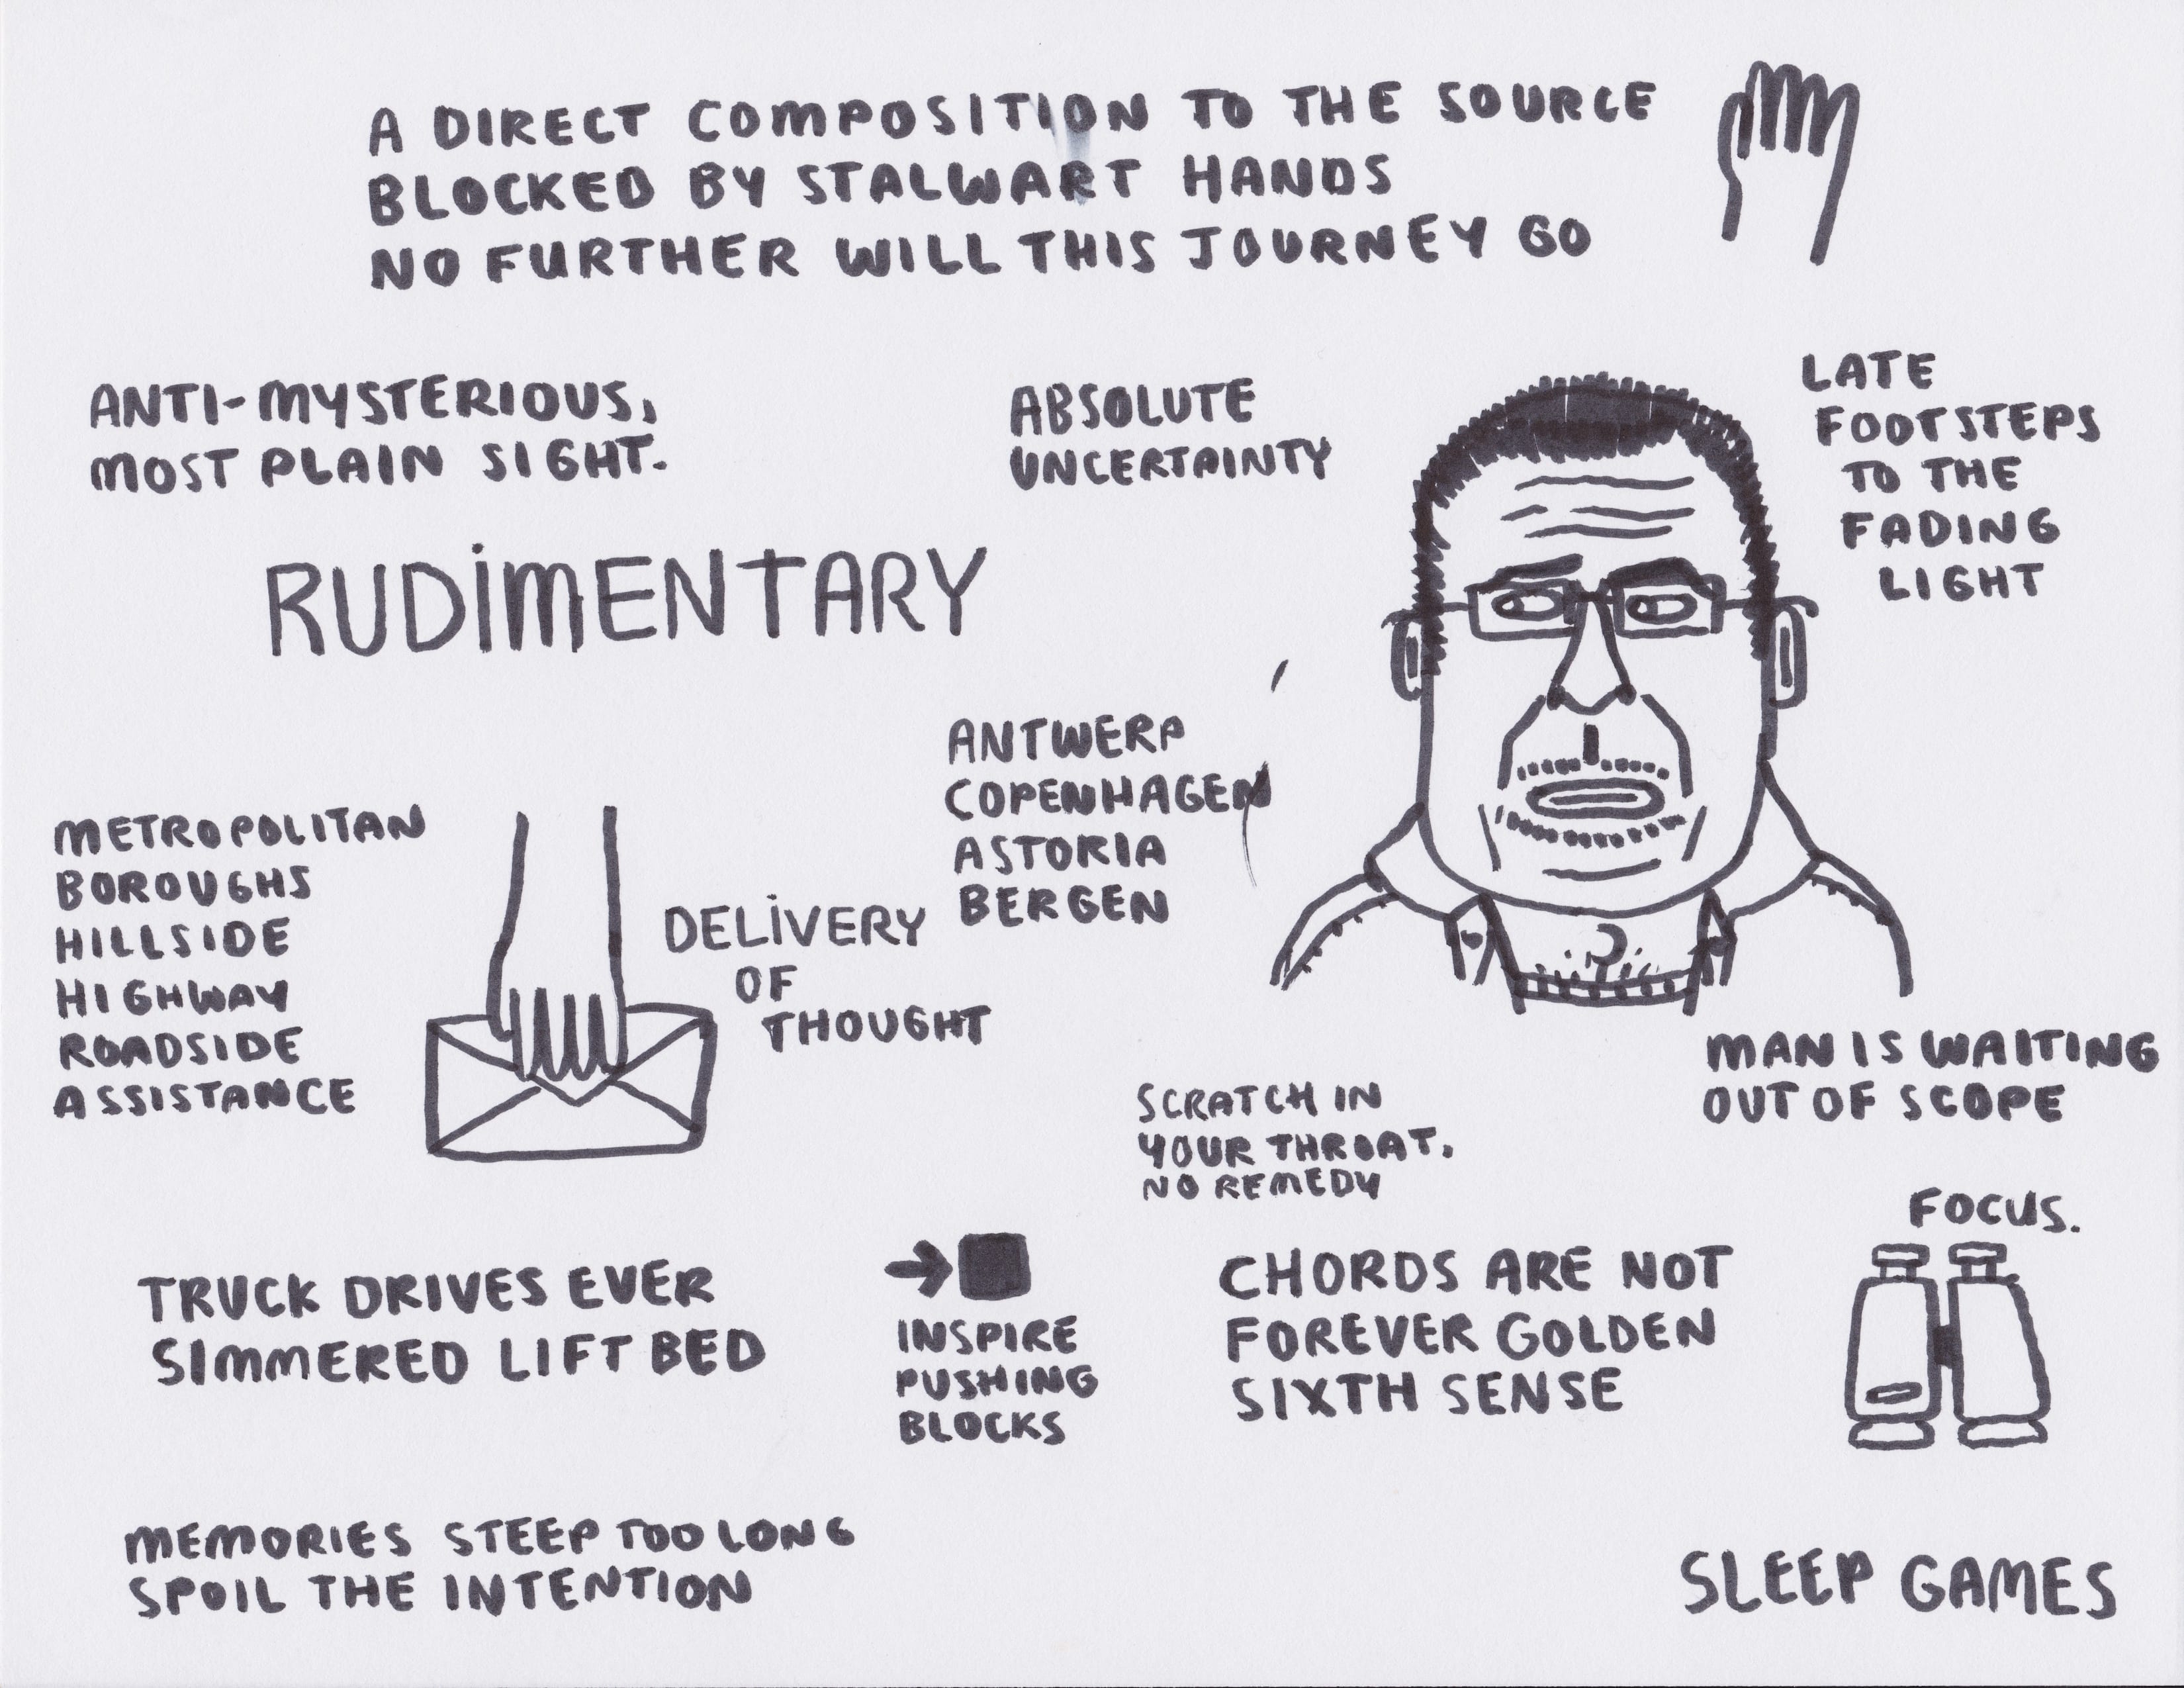 A DIRECT COMPOSITION TO THE SOURCE
BLOCKED BY STALWART HANDS
NO FURTHER WILL THIS JOURNEY GO
ANTI-MYSTERIOUS,
MOST PLAIN SIGHT.
ABSOLUTE
UNCERTAINTY
LATE
FOOTSTEPS
TO THE
FADING
LIGHT
RUDIMENTARY
ANTWERP
COPENHAGEN
ASTORIA
BERGEN
METROPOLITAN
BOROUGHS
HILLSIDE
HIGHWAY
ROADSIDE
ASSISTANCE
DELIVERY
OF
THOUGHT
MAN IS WAITING
OUT OF SCOPE
SCRATCH IN
YOUR THROAT,
NO REMEDY
FOCUS.
TRUCK DRIVES EVER
SIMMERED LIFT BED
INSPIRE
PUSHING
BLOCKS
CHORDS ARE NOT
FOREVER GOLDEN
SIXTH SENSE
MEMORIES STEEP TOO LONG
SPOIL THE INTENTION
SLEEP GAMES